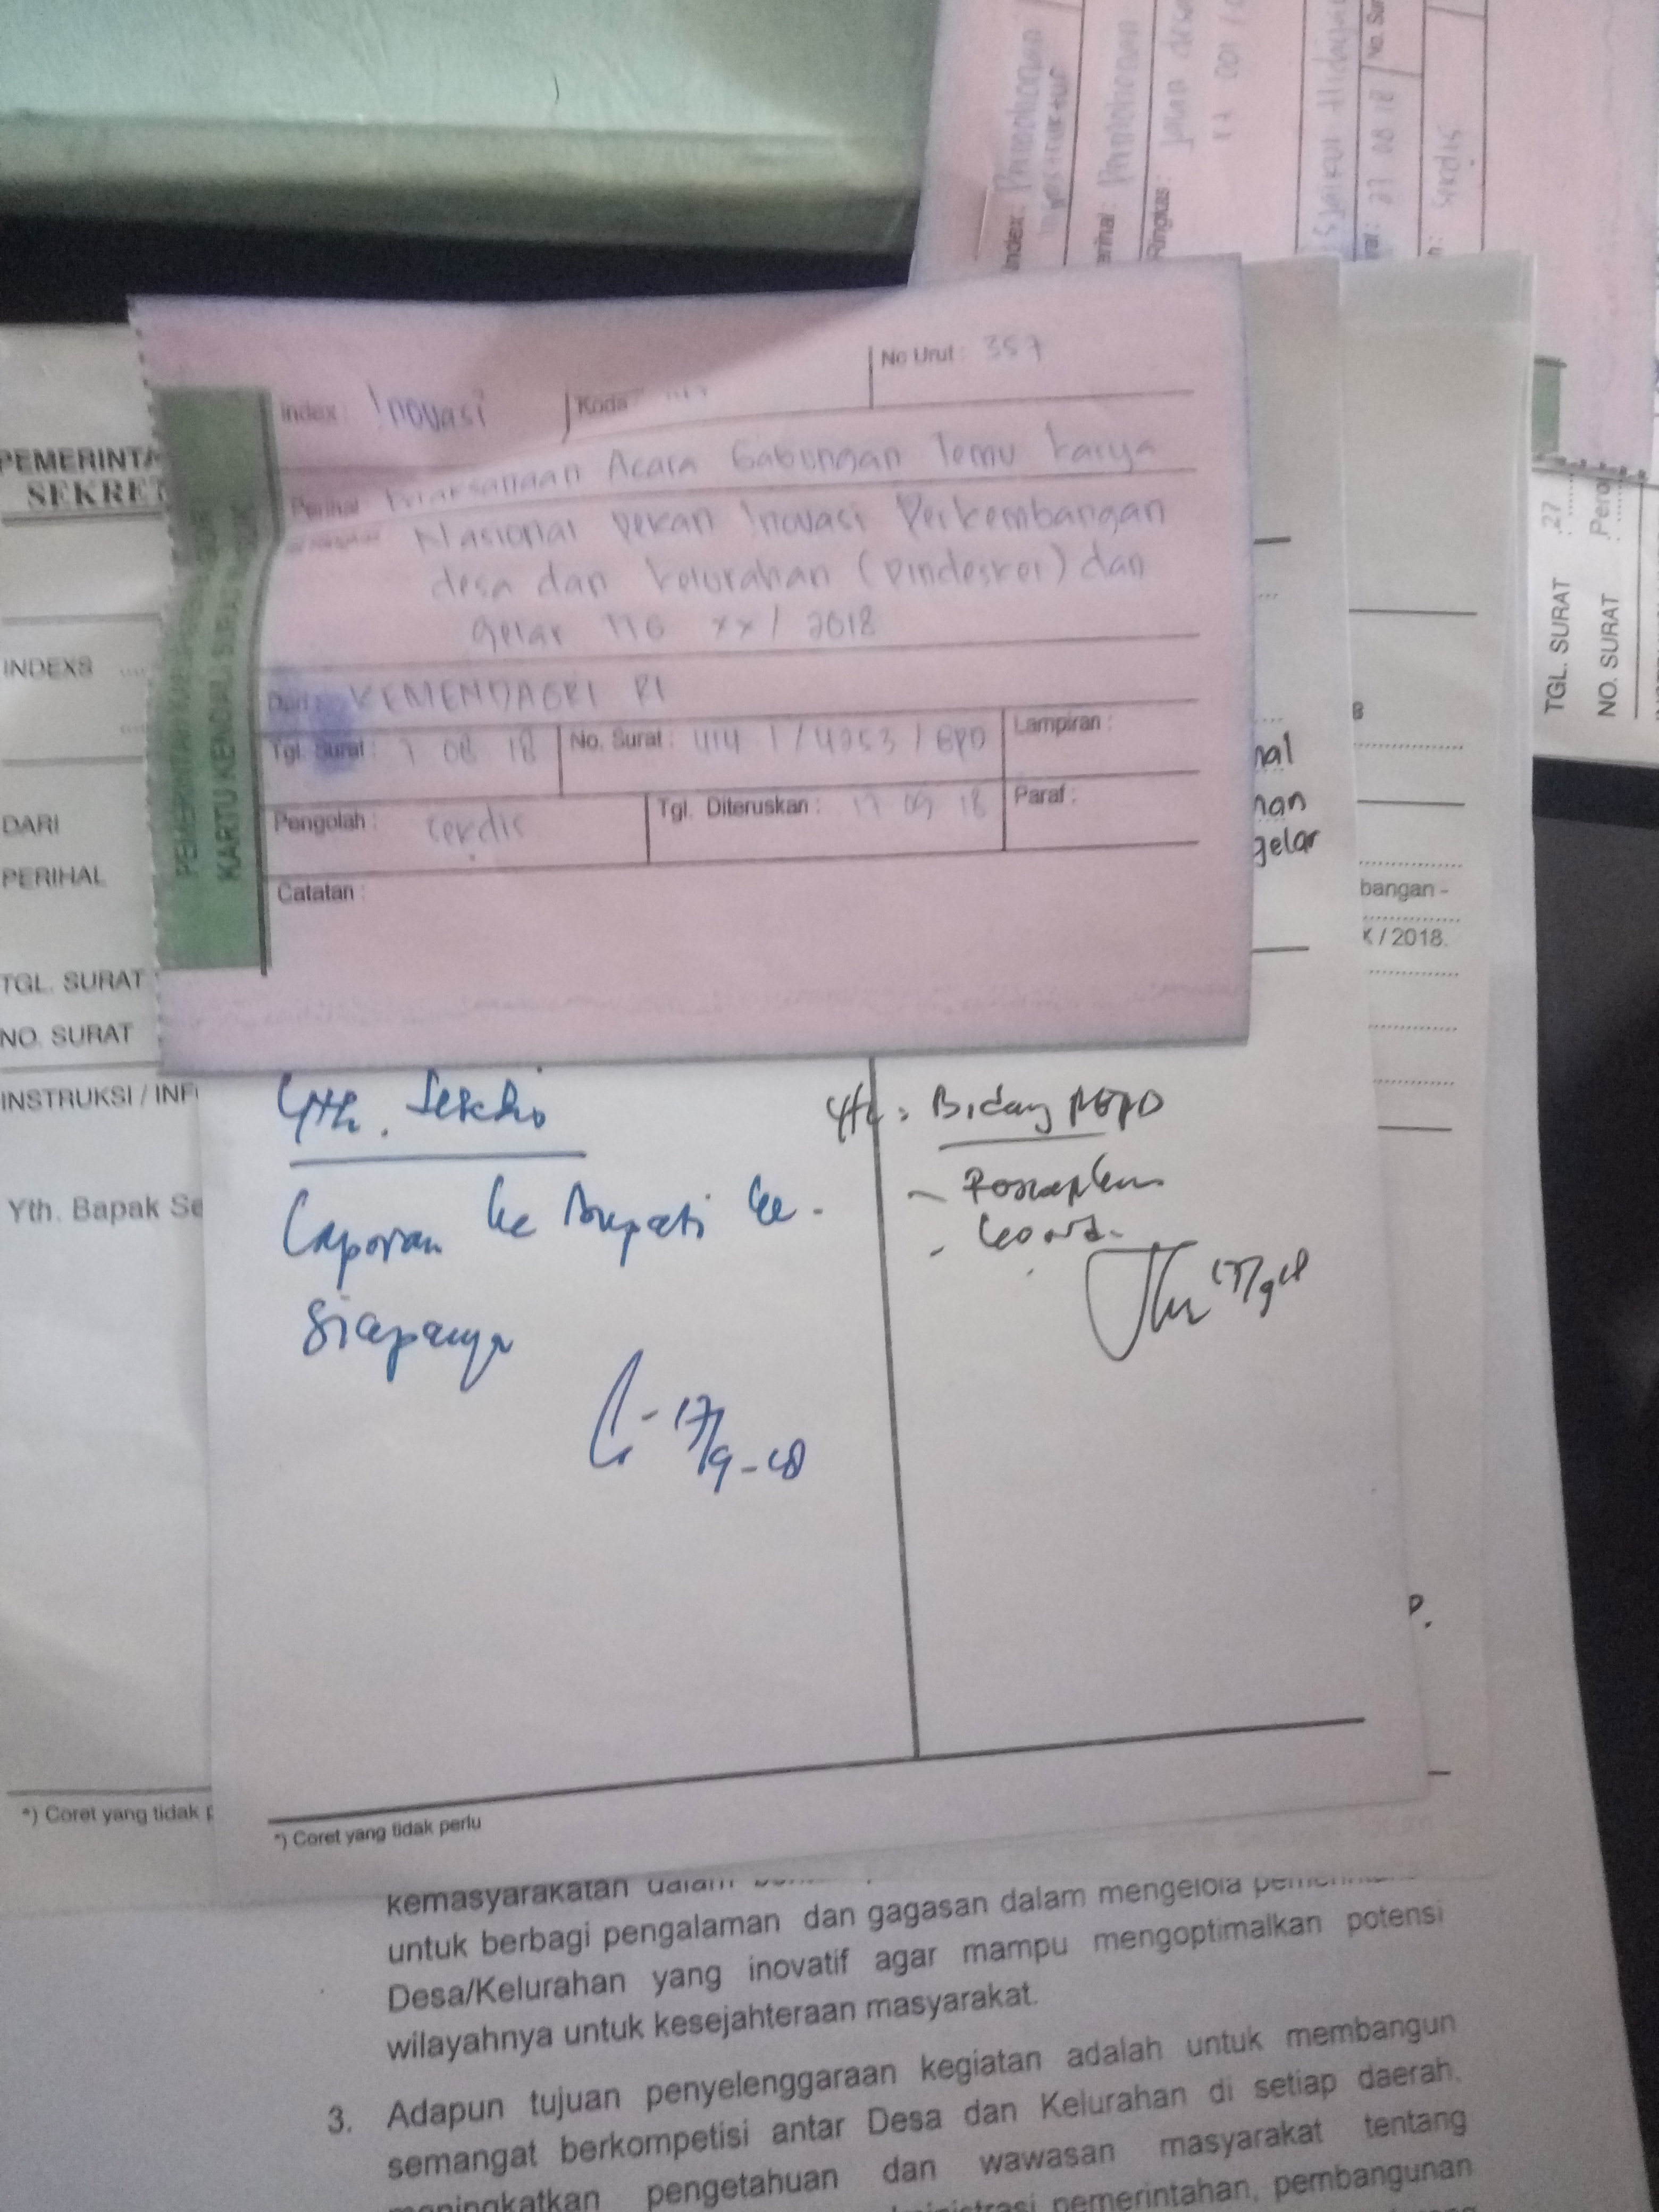 Index: Penvohonan
Infrastruktur
erihal: Permohonan
Ringkas: Jalan desa
Syaikul Hidayat
rat: 27 08 18
No. Su
n: Sekdis
Index: Inovasi
Kode
No Urut: 357
Perihal Pelaksanaan Acara Gabungan Temu Karya
Nasional Pekan Inovasi Perkembangan
desa dan kelurahan (Pindeskel) dan
gelar TTG XX / 2018
Dari: KEMENDAGRI RI
Tgl. Surat: 7 08 18
No. Surat: 414 1 / 4253 / BPD
Lampiran:
Pengolah: Sekdis
Tgl. Diteruskan: 17 09 18
Paraf:
Catatan:
KARTU KENDALI SURAT
PEMERINTA
SEKRET
INDEXS
DARI
PERIHAL
TGL. SURAT
NO. SURAT
INSTRUKSI / INF
Yth. Bapak Se
TGL. SURAT : 27
NO. SURAT
nal
nan
gelar
bangan -
X / 2018.
Yth. Sekdis
Laporan ke Bupati ke.
siapanya
17/9-18
Yth: Bidang
- Koord.
17/9 18
P.
*) Coret yang tidak p
*) Coret yang tidak perlu
kemasyarakatan dalam
untuk berbagi pengalaman dan gagasan dalam mengelola
Desa/Kelurahan yang inovatif agar mampu mengoptimalkan potensi
wilayahnya untuk kesejahteraan masyarakat.
3. Adapun tujuan penyelenggaraan kegiatan adalah untuk membangun
semangat berkompetisi antar Desa dan Kelurahan di setiap daerah,
meningkatkan pengetahuan dan wawasan masyarakat tentang
pemerintahan, pembangunan